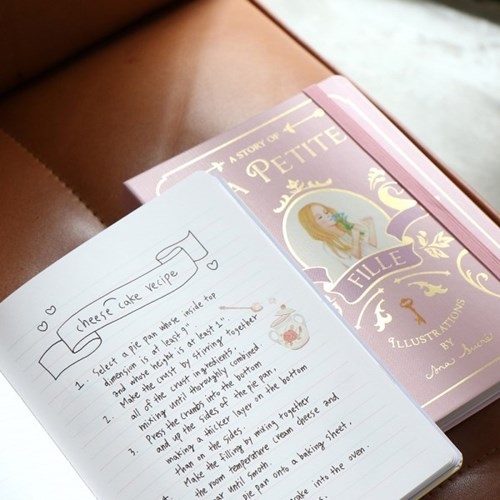 cheese cake recipe
1. Select a pie pan whose inside top
dimension is at least 9"
and whose height is at least 1"
2. Make the crust by stirring together
all of the crust ingredients,
mixing until thoroughly combined.
3. Press the crumbs into the bottom
and up the sides of the pie pan,
making a thicker layer on the bottom
than on the sides.
Make the filling by mixing together
the room temperature cream cheese and
sugar until smooth.
pie pan onto a baking sheet,
cake into the oven.
A STORY OF
A PETITE
FILLE
ILLUSTRATIONS
BY